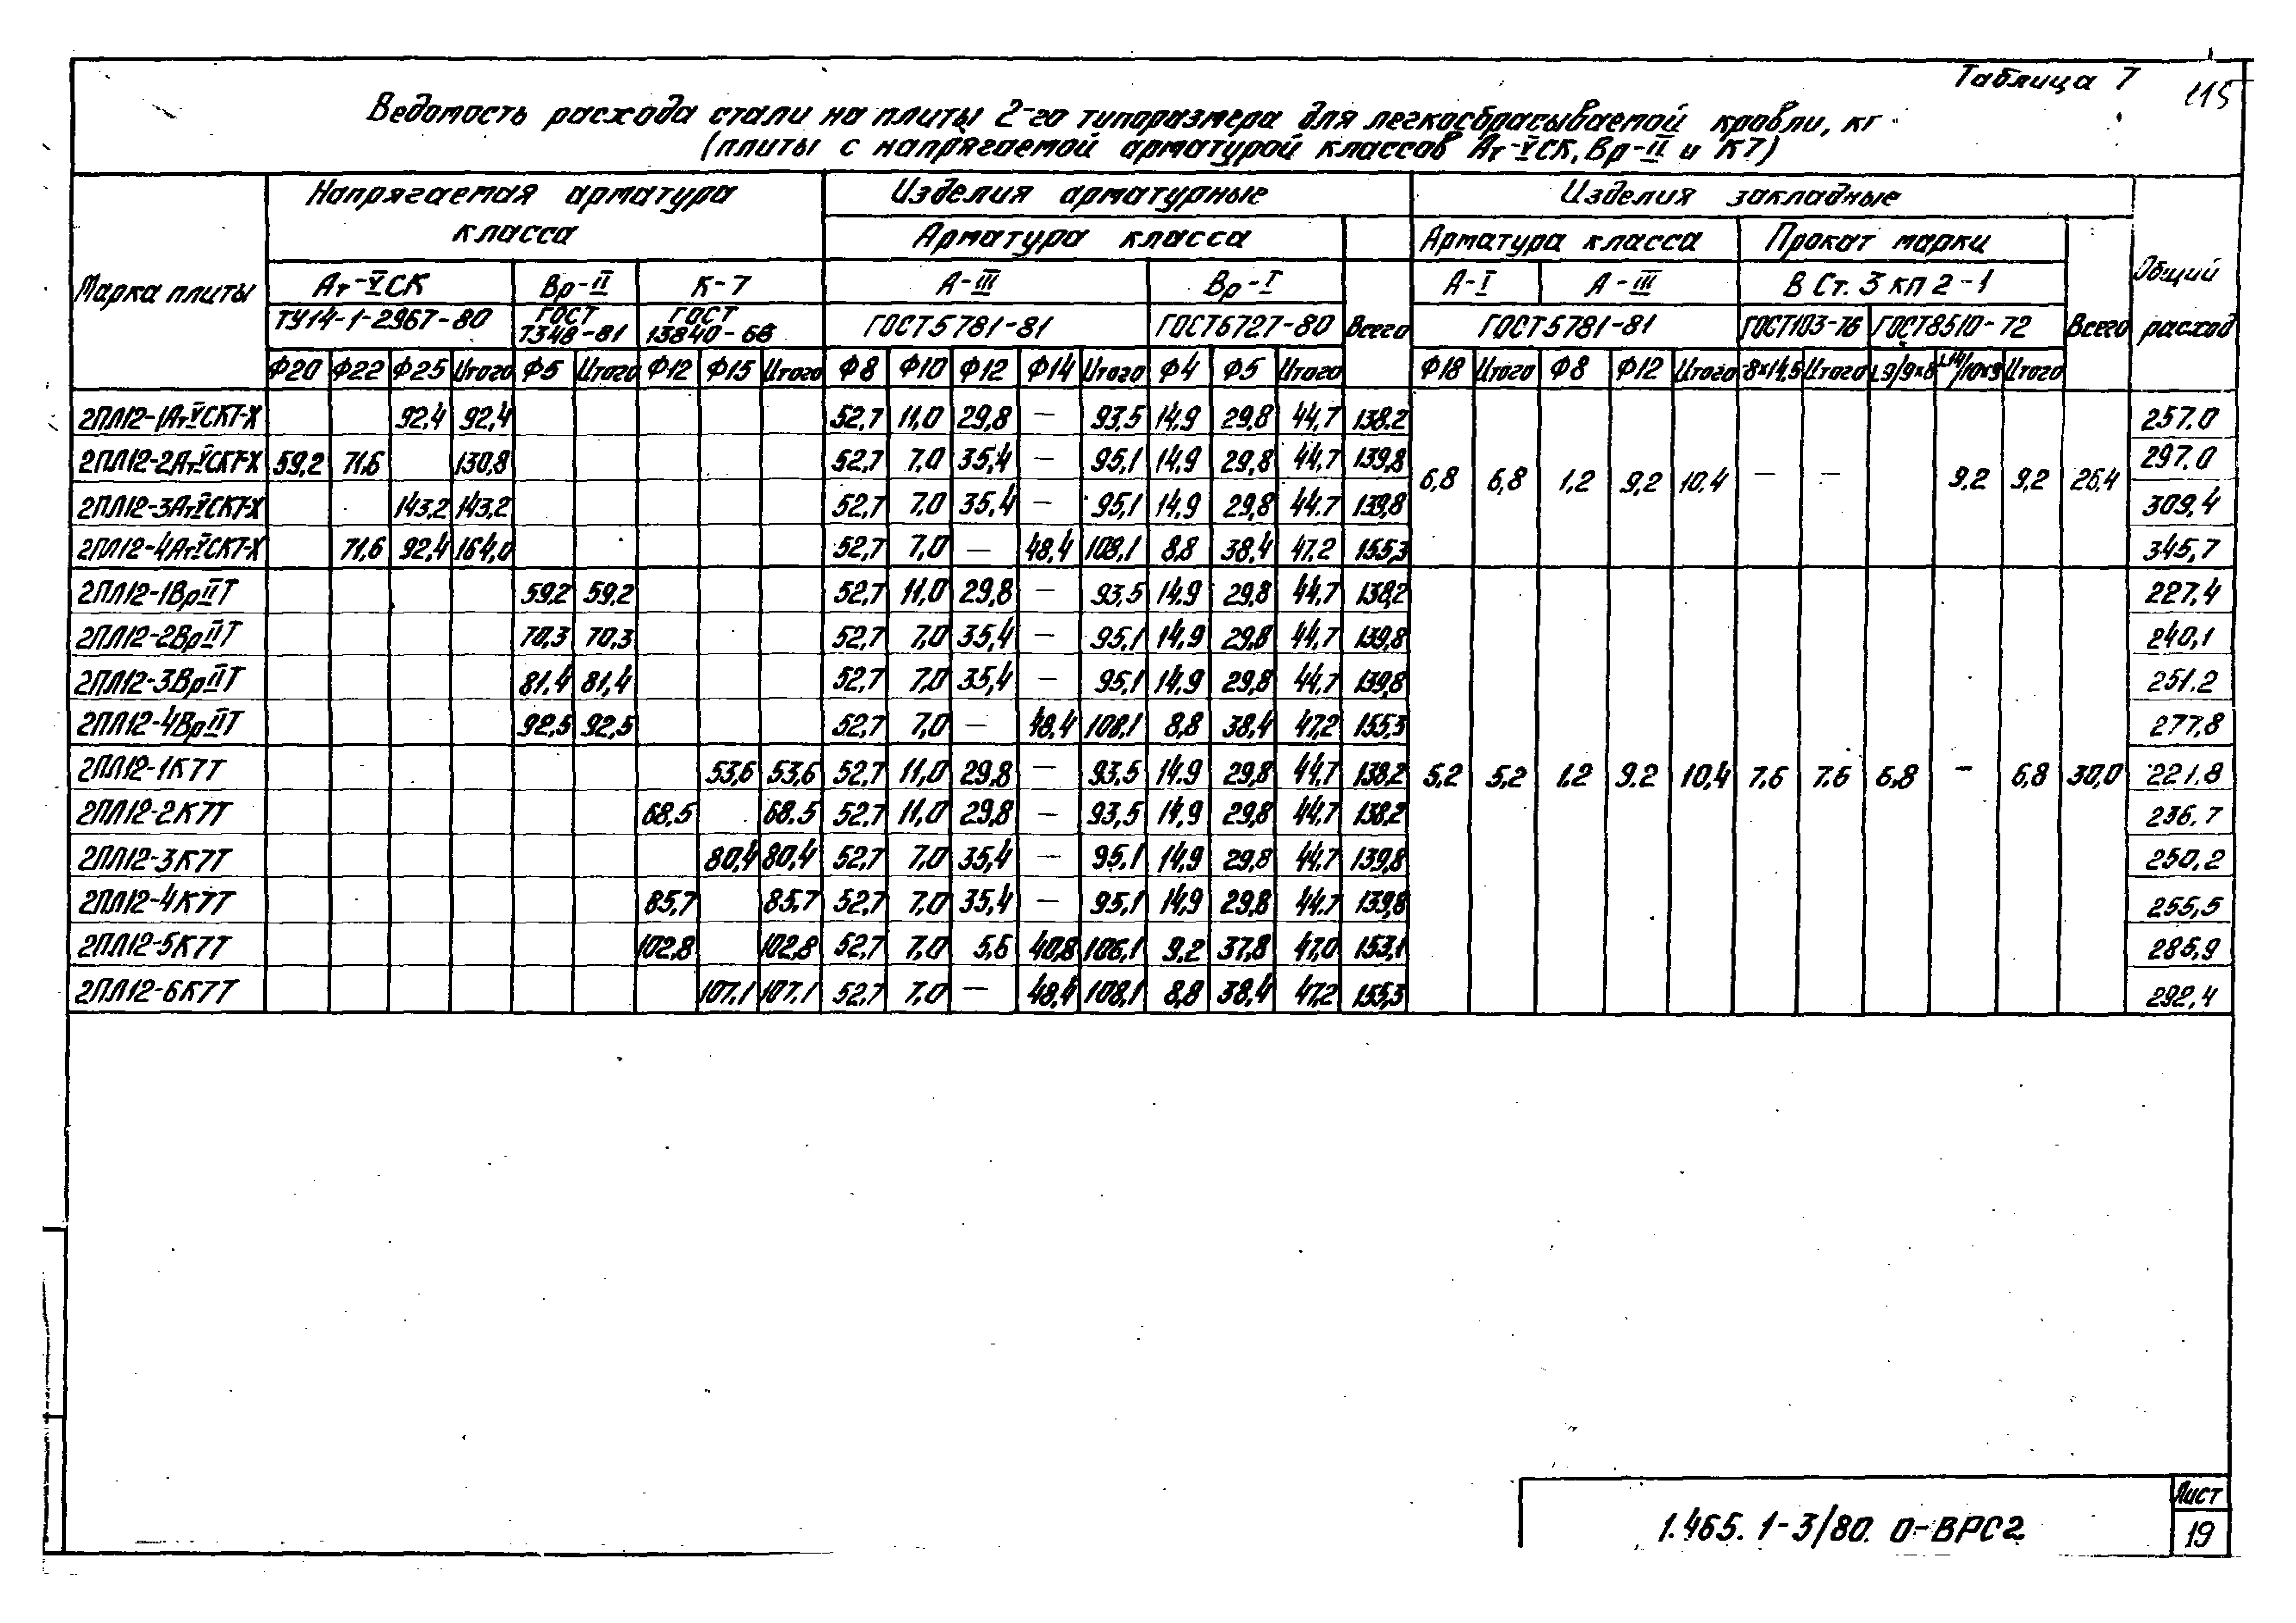 Таблица 7
115
Ведомость расхода стали на плиты 2-го типоразмера для легкосбрасываемой кровли, кг
(плиты с напрягаемой арматурой классов Ат-VСК, Вр-II и К7)
Марка плиты Напрягаемая арматура класса Изделия арматурные Изделия закладные Общий расход
Арматура класса Всего Арматура класса Прокат марки Всего
Ат-VСК Вр-II К-7 А-III Вр-I А-I А-III В Ст. 3 кп 2-1
ТУ14-1-2967-80 ГОСТ 7348-81 ГОСТ 13840-68 ГОСТ5781-81 ГОСТ6727-80 ГОСТ5781-81 ГОСТ103-76 ГОСТ8510-72
Ф20 Ф22 Ф25 Итого Ф5 Итого Ф12 Ф15 Итого Ф8 Ф10 Ф12 Ф14 Итого Ф4 Ф5 Итого Ф18 Итого Ф8 Ф12 Итого Итого L9/9×8 Итого
2ПЛ12-1АтVСКТ-Х 92,4 92,4 52,7 11,0 29,8 — 93,5 14,9 29,8 44,7 138,2 257,0
2ПЛ12-2АтVСКТ-Х 59,2 71,6 130,8 52,7 7,0 35,4 — 95,1 14,9 29,8 44,7 139,8 297,0
6,8 6,8 1,2 9,2 10,4 — — 9,2 9,2 26,4
2ПЛ12-3АтVСКТ-Х 143,2 143,2 52,7 7,0 35,4 — 95,1 14,9 29,8 44,7 139,8 309,4
2ПЛ12-4АтVСКТ-Х 71,6 92,4 164,0 52,7 7,0 — 48,4 108,1 8,8 38,4 47,2 155,3 345,7
2ПЛ12-1ВрIIТ 59,2 59,2 52,7 11,0 29,8 — 93,5 14,9 29,8 44,7 138,2 227,4
2ПЛ12-2ВрIIТ 70,3 70,3 52,7 7,0 35,4 — 95,1 14,9 29,8 44,7 139,8 240,1
2ПЛ12-3ВрIIТ 81,4 81,4 52,7 7,0 35,4 — 95,1 14,9 29,8 44,7 139,8 251,2
2ПЛ12-4ВрIIТ 92,5 92,5 52,7 7,0 — 48,4 108,1 8,8 38,4 47,2 155,3 277,8
2ПЛ12-1К7Т 53,6 53,6 52,7 11,0 29,8 — 93,5 14,9 29,8 44,7 138,2 5,2 5,2 1,2 9,2 10,4 7,6 7,6 6,8 — 6,8 30,0 221,8
2ПЛ12-2К7Т 68,5 68,5 52,7 11,0 29,8 — 93,5 14,9 29,8 44,7 138,2 236,7
2ПЛ12-3К7Т 80,4 80,4 52,7 7,0 35,4 — 95,1 14,9 29,8 44,7 139,8 250,2
2ПЛ12-4К7Т 85,7 85,7 52,7 7,0 35,4 — 95,1 14,9 29,8 44,7 139,8 255,5
2ПЛ12-5К7Т 102,8 102,8 52,7 7,0 5,6 40,8 106,1 9,2 37,8 47,0 153,1 285,9
2ПЛ12-6К7Т 107,1 107,1 52,7 7,0 — 48,4 108,1 8,8 38,4 47,2 155,3 292,4
1.465.1-3/80. 0-ВРС2
Лист
19